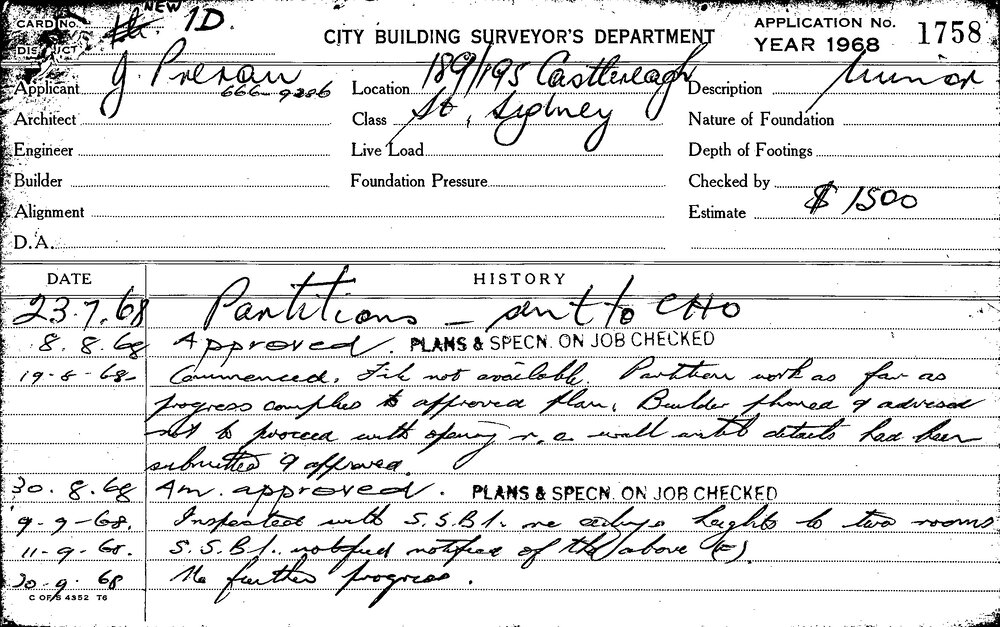 CARD No. NEW 1D.
DISTRICT
CITY BUILDING SURVEYOR'S DEPARTMENT
APPLICATION No. 1758
YEAR 1968
Applicant J. 666-9286
Location 189/195 Castlereagh
Description Minor
Architect
Class St, Sydney
Nature of Foundation
Engineer
Live Load
Depth of Footings
Builder
Foundation Pressure
Checked by
Alignment
Estimate $1500
D.A.
DATE HISTORY
23.7.68 Partitions - sent to CHO
8.8.68 Approved. PLANS & SPECN. ON JOB CHECKED
19-8-68- Commenced. File not available. Partition work as far as
progress complies to approved plan. Builder phoned & advised
not to proceed with opening in a wall until details had been
submitted & approved.
30.8.68 Am. approved. PLANS & SPECN. ON JOB CHECKED
9-9-68. Inspected with S.S.B.I. re ceiling heights to two rooms
11-9-68. S.S.B.I. notified of the above
30-9-68 No further progress.
C OF S 4352 T6